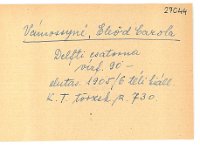 27044
Vámossyné, Eleőd Carola
Delfti csatorna
vízf. 90 -
elutas. 1905/6 téli kiáll.
K. T. törzsk. p. 730